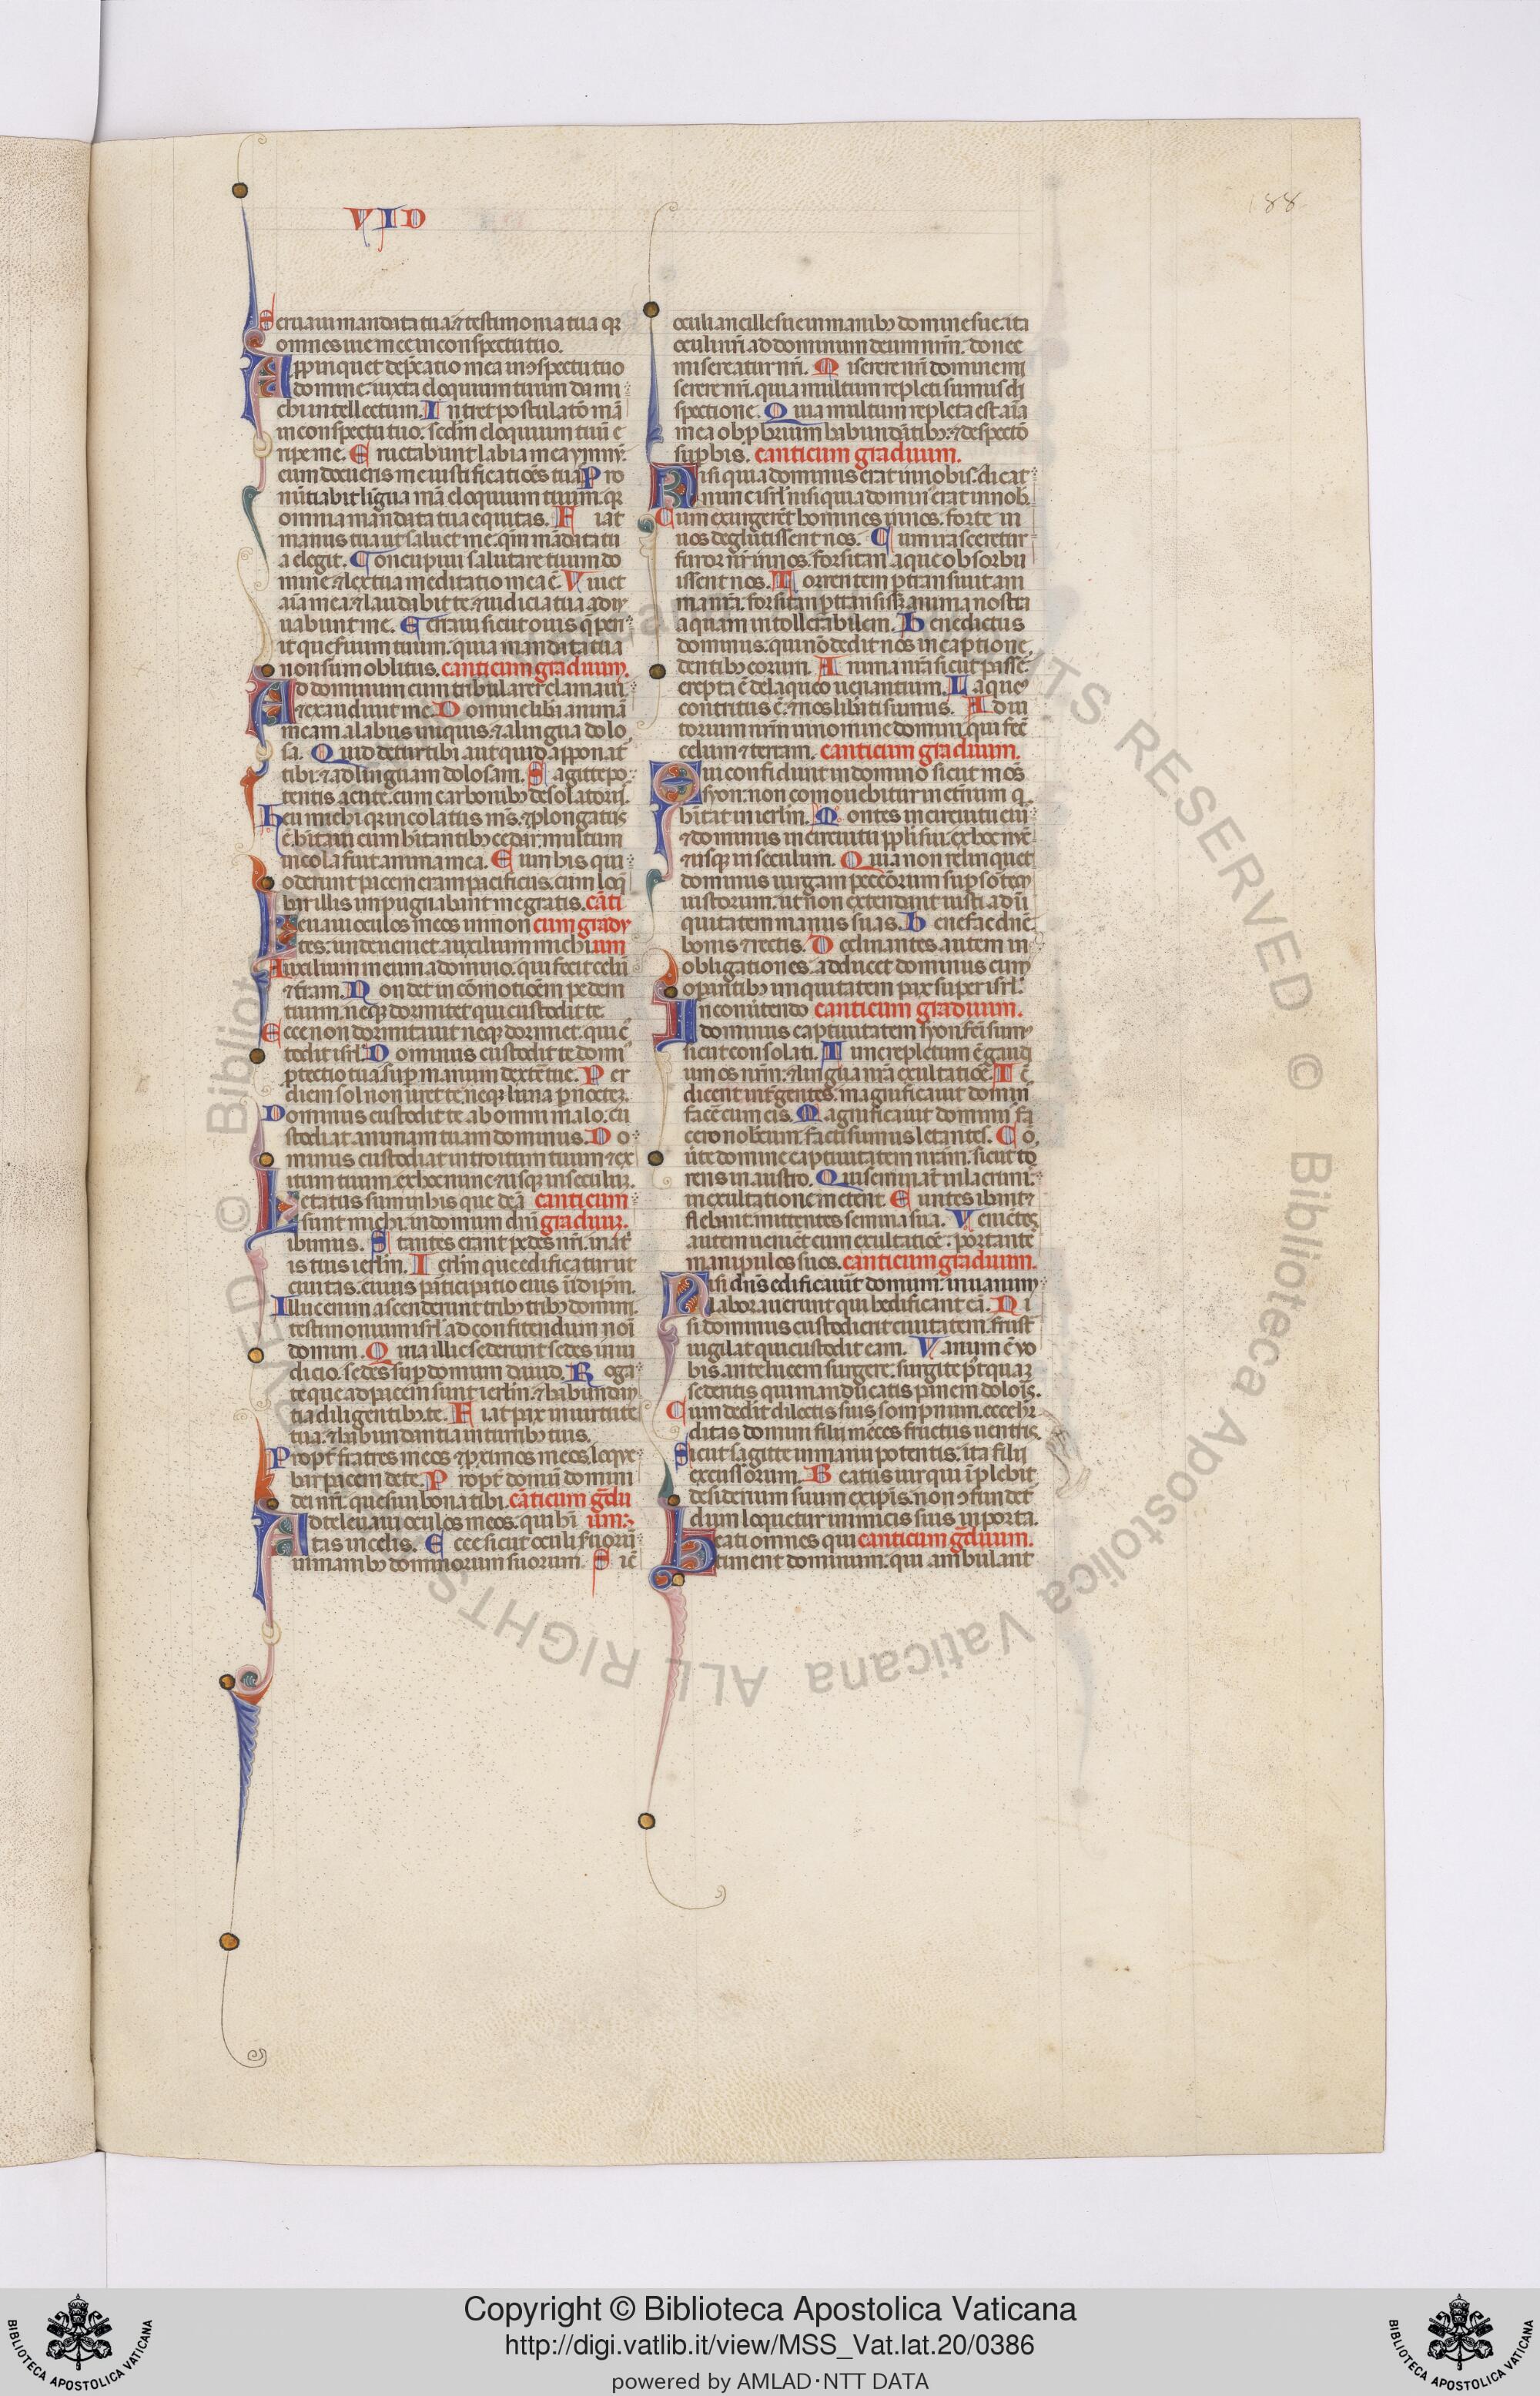 VID
188
Seruaui mandata tua ⁊ testimonia tua qr
omnes uie mee in conspectu tuo.
Appinquet dep̄catio mea in ↄspectu tuo
domine: iuxta eloquium tuum da mi
chi intellectum. Intret postulatō mā
in conspectu tuo: scdm̄ eloquium tuū e
ripe me. Eructabunt labia mea ymnū:
cum docueris me iustificatiōes tuas. Pro
nūtiabit lingua mā eloquium tuum. qr
omnia mandata tua equitas. Fiat
manus tua ut saluet me. qm̄ mādata tu
a elegi. Concupiui salutare tuum do
mine ⁊ lex tua meditatio mea ē. Viuet
aīa mea ⁊ laudabit te: ⁊ iudicia tua adiu
uabunt me. Erraui sicut ouis q̄ peri
it quere seruum tuum. quia mandata tua
non sum oblitus. canticum graduum.
Ad dominum cum tribularer clamaui
⁊ exaudiuit me. Domine libera animā
meam a labiis iniquis. ⁊ a lingua dolo
sa. Quid detur tibi aut quid apponat̄
tibi: ⁊ ad linguam dolosam. Sagitte po
tentis acute: cum carbonibȝ desolatoriis.
Heu michi qr incolatus m̄s ꝓlongatus
ē hītaui cum hītantibȝ cedar: multum
incola fuit anima mea. Cum his qui
oderunt pacem eram pacificus. cum loq̄
bar illis impugnabant me gratis. cāti
Leuaui oculos meos in mon cum gradu
tes: unde ueniet auxilium michi. um
Auxilium meum a domino. qui fecit celū
⁊ t̄ram. Non det in cōmotiōem pedem
tuum. neqȝ dormitet qui custodit te.
Ecce non dormitauit neqȝ dormiet: qui c
todit isrl̄. Dominus custodit te domi
ꝓtectio tua: sup manum dext̄e tue. Per
diem sol non uret te: neqȝ luna p noctem.
Dominus custodit te ab omni malo. cu
stodiat animam tuam dominus. Do
minus custodiat introitum tuum ⁊ ex
itum tuum: ex hoc nunc ⁊ usqȝ in seculum.
Letatus sum in his que dcā canticum
sunt michi: in domum dn̄i graduum.
ibimus. Stantes erant pedes nr̄i. in at̄
is tuis ierlm̄. Ierlm̄ que edificatur ut
ciuitas. cuius participatio eius ī idip̄m.
Illuc enim ascenderunt tribȝ tribȝ domini.
testimonium isrl̄ ad confitendum noī
domini. Quia illic sederunt sedes in iu
dicio. sedes sup domum dauid. Roga
te que ad pacem sunt ierlm̄. ⁊ habundan
tia diligentibȝ te. Fiat pax in uirtute
tua. ⁊ habundantia in turribȝ tuis.
Propt̄ fratres meos ⁊ ꝓximos meos. loque
bar pacem de te. Propt̄ domū domini
dei nr̄i. quesiui bona tibi. cāticum gradu
Ad te leuaui oculos meos. qui hī um:
tas in celis. Ecce sicut oculi seruorū
in manibȝ dominorum suorum. Sic̄
oculi ancille sue in manibȝ domine sue. ita
oculi nr̄i. ad dominum deum nr̄m. donec
misereatur nr̄i. Miserere nr̄i domine mi
serere nr̄i. quia multum repleti sumus di
spectione. Quia multum repleta est aīa
mea obp̄brium habundātibȝ: ⁊ despectō
sup̄bis. canticum graduum.
Nisi quia dominus erat in nobis. dicat
nunc isrl̄. nisi quia domin' erat in nob̄.
Cum exurgerēt homines in nos. forte ui
uos deglutissent nos. Cum irasceretur
furor eor̄ in nos. forsitan aque obsorbu
issent nos. Torrentem p̄transiuit ani
ma nr̄a. forsitan p̄transiss̄ anima nostra
aquam intollerabilem. Benedictus
dominus. qui nō dedit nos in captione
dentibȝ eorum. Anima nr̄a sicut passer
erepta ē de laqueo uenantium. Laque'
contritus ē. ⁊ nos liberati sumus. Adiu
torium nr̄m in nomine domini. qui fec̄
celum ⁊ terram. canticum graduum.
Qui confidunt in domino sicut mōs
syon: non comouebitur in et̄num q
hītat in ierlm̄. Montes in circuitu eiu'
⁊ dominus in circuitu ppli sui. ex hoc nūc
⁊ usqȝ in seculum. Quia non relinquet
dominus uirgam peccatorum sup sortem
iustorum. ut non extendant iusti ad in
quitatem manus suas. Benefac dn̄e
bonis ⁊ rectis. Declinantes autem in
obligationes. adducet dominus cum
operantibȝ iniquitatem pax super isrl̄.
In conūtendo canticum graduum.
dominus captiuitatem syon. fc̄i sum'
sicut consolati. Tunc repletum ē gaud
um os nr̄m. ⁊ lingua nr̄a exultatiōe. Tc̄
dicent int̄ gentes. magnificauit domin'
facere cum eis. Magnificauit domin' fa
cere nobiscum. facti sumus letantes. Cō
uerte domine captiuitatem nr̄am. sicut to
rens in austro. Qui seminant in lacrimis:
in exultatione metent. Euntes ibant ⁊
flebant. mittentes semina sua. Veniētes
autem ueniēt cum exultatiōe. portante'
manipulos suos. canticum graduum.
Nisi dn̄s edificauīt domum: in uanum
laborauerunt qui hedificant eā. Ni
si dominus custodierit ciuitatem. frust
uigilat qui custodit eam. Vanum ē uo
bis ante lucem surgere. surgite p̄tquam
sederitis qui manducatis panem doloris.
Cum dedit dilectis suis sompnum. ecce her
ditas domini filii merces fructus uentris.
Sicut sagitte in manu potentis. ita filii
excussorum. Beatus uir qui īplebit
desiderium suum ex ipsis. non ↄfundet
dum loquetur inimicis suis in porta.
Beati omnes qui canticum graduum.
timent dominum: qui ambulant
Copyright © Biblioteca Apostolica Vaticana
http://digi.vatlib.it/view/MSS_Vat.lat.20/0386
powered by AMLAD·NTT DATA
BIBLIOTECA APOSTOLICA VATICANA
BIBLIOTECA APOSTOLICA VATICANA